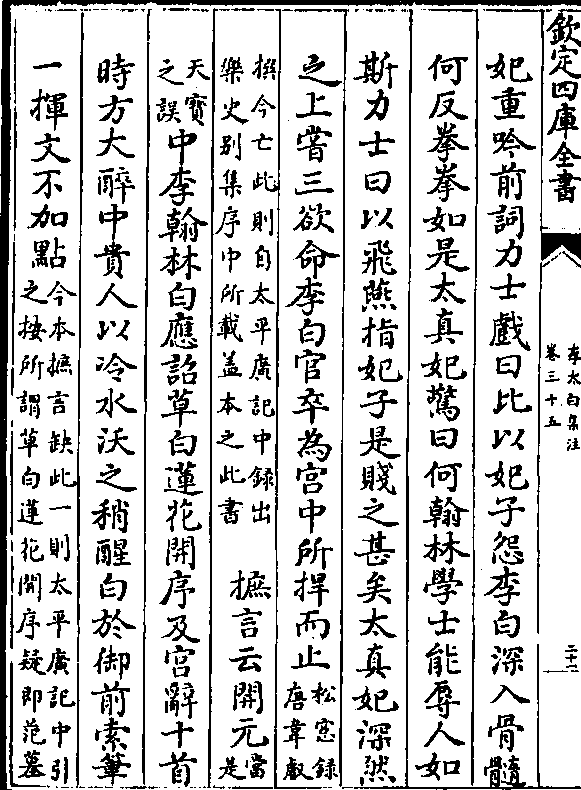 欽定四庫全書
李太白集注
卷三十五
二十一
妃重吟前詞力士戲曰比以妃子怨李白深入骨髓
何反拳拳如是太真妃驚曰何翰林學士能辱人如
斯力士曰以飛燕指妃子是賤之甚矣太真妃深然
之上嘗三欲命李白官卒為宫中所捍而止松窓録唐韋叡
撰今亡此則自太平廣記中録出樂史别集序中所載盖本之此書 摭言云開元當是
天寶之誤中李翰林白應詔草白蓮花開序及宫辭十首
時方大醉中貴人以冷水沃之稍醒白於御前索筆
一揮文不加點今本摭言缺此一則太平廣記中引之按所謂草白蓮花開序疑即范墓